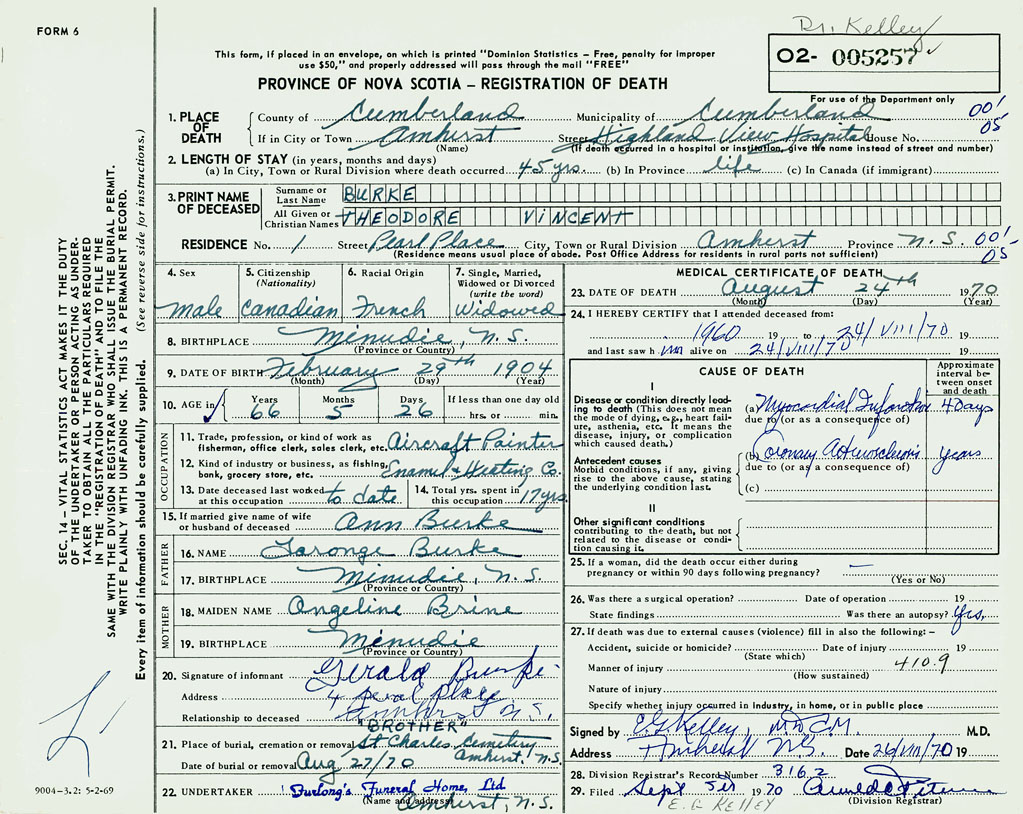 FORM 6
Dr. Kelley
This form, if placed in an envelope, on which is printed "Dominion Statistics – Free, penalty for improper
use $50," and properly addressed will pass through the mail "FREE"
O2- 005257
PROVINCE OF NOVA SCOTIA – REGISTRATION OF DEATH
For use of the Department only
001
05
1. PLACE OF DEATH
County of Cumberland Municipality of Cumberland
If in City or Town Amherst Street Highland View Hospital House No.
(Name) (If death occurred in a hospital or institution, give the name instead of street and number)
2. LENGTH OF STAY (in years, months and days)
(a) In City, Town or Rural Division where death occurred 45 yrs. (b) In Province life (c) In Canada (if immigrant)
3. PRINT NAME OF DECEASED
Surname or Last Name BURKE
All Given or Christian Names THEODORE VINCENT
RESIDENCE No. 1 Street Pearl Place City, Town or Rural Division Amherst Province N.S. 001
05
(Residence means usual place of abode. Post Office Address for residents in rural parts not sufficient)
4. Sex
male
5. Citizenship
(Nationality)
Canadian
6. Racial Origin
French
7. Single, Married,
Widowed or Divorced
(write the word)
Widowed
8. BIRTHPLACE Minudie, N.S.
(Province or Country)
9. DATE OF BIRTH February 29th 1904
(Month) (Day) (Year)
10. AGE in
Years Months Days If less than one day old
66 5 26 hrs. or min.
OCCUPATION
11. Trade, profession, or kind of work as
fisherman, office clerk, sales clerk, etc. Aircraft Painter
12. Kind of industry or business, as fishing,
bank, grocery store, etc. Enamel & Heating Co.
13. Date deceased last worked
at this occupation to date
14. Total yrs. spent in
this occupation 17 yrs.
15. If married give name of wife
or husband of deceased Ann Burke
FATHER
16. NAME Burke
17. BIRTHPLACE Minudie, N.S.
(Province or Country)
MOTHER
18. MAIDEN NAME Angeline Brine
19. BIRTHPLACE Minudie
(Province or Country)
20. Signature of informant Gerald Burke
Address 4 Pearl Place
Amherst N.S.
Relationship to deceased "BROTHER"
21. Place of burial, cremation or removal St Charles Cemetery
Amherst, N.S.
Date of burial or removal Aug 27/70
22. UNDERTAKER Furlong's Funeral Home, Ltd
(Name and address) Amherst, N.S.
MEDICAL CERTIFICATE OF DEATH
23. DATE OF DEATH August 24th 1970
(Month) (Day) (Year)
24. I HEREBY CERTIFY that I attended deceased from:
1960 19 to 24/VIII/70 19
and last saw him alive on 24/VIII/70 19
CAUSE OF DEATH
Approximate
interval be-
tween onset
and death
I
Disease or condition directly lead-
ing to death (This does not mean
the mode of dying, e.g., heart fail-
ure, asthenia, etc. It means the
disease, injury, or complication
which caused death.)
(a) Myocardial Infarction 4 Days
due to (or as a consequence of)
Antecedent causes
Morbid conditions, if any, giving
rise to the above cause, stating
the underlying condition last.
(b) Coronary Arteriosclerosis years
due to (or as a consequence of)
(c)
II
Other significant conditions
contributing to the death, but not
related to the disease or condi-
tion causing it.
25. If a woman, did the death occur either during
pregnancy or within 90 days following pregnancy? —
(Yes or No)
26. Was there a surgical operation? Date of operation 19
State findings Was there an autopsy? Yes,
27. If death was due to external causes (violence) fill in also the following: –
Accident, suicide or homicide? Date of injury 19
(State which)
Manner of injury 410.9
(How sustained)
Nature of injury
Specify whether injury occurred in industry, in home, or in public place
Signed by E.G. Kelley, M.D.C.M. M.D.
Address Amherst N.S. Date 26/VIII/70 19
28. Division Registrar's Record Number 3162
29. Filed Sept 5th 1970
(Division Registrar)
E. G KELLEY
SEC. 14 – VITAL STATISTICS ACT MAKES IT THE DUTY
OF THE UNDERTAKER OR PERSON ACTING AS UNDER-
TAKER TO OBTAIN ALL THE PARTICULARS REQUIRED
IN THE "REGISTRATION OF DEATH" AND TO FILE THE
SAME WITH THE DIVISION REGISTRAR WHO SHALL ISSUE THE BURIAL PERMIT.
WRITE PLAINLY WITH UNFADING INK. THIS IS A PERMANENT RECORD.
Every item of information should be carefully supplied. (See reverse side for instructions.)
9004-3.2: 5-2-69